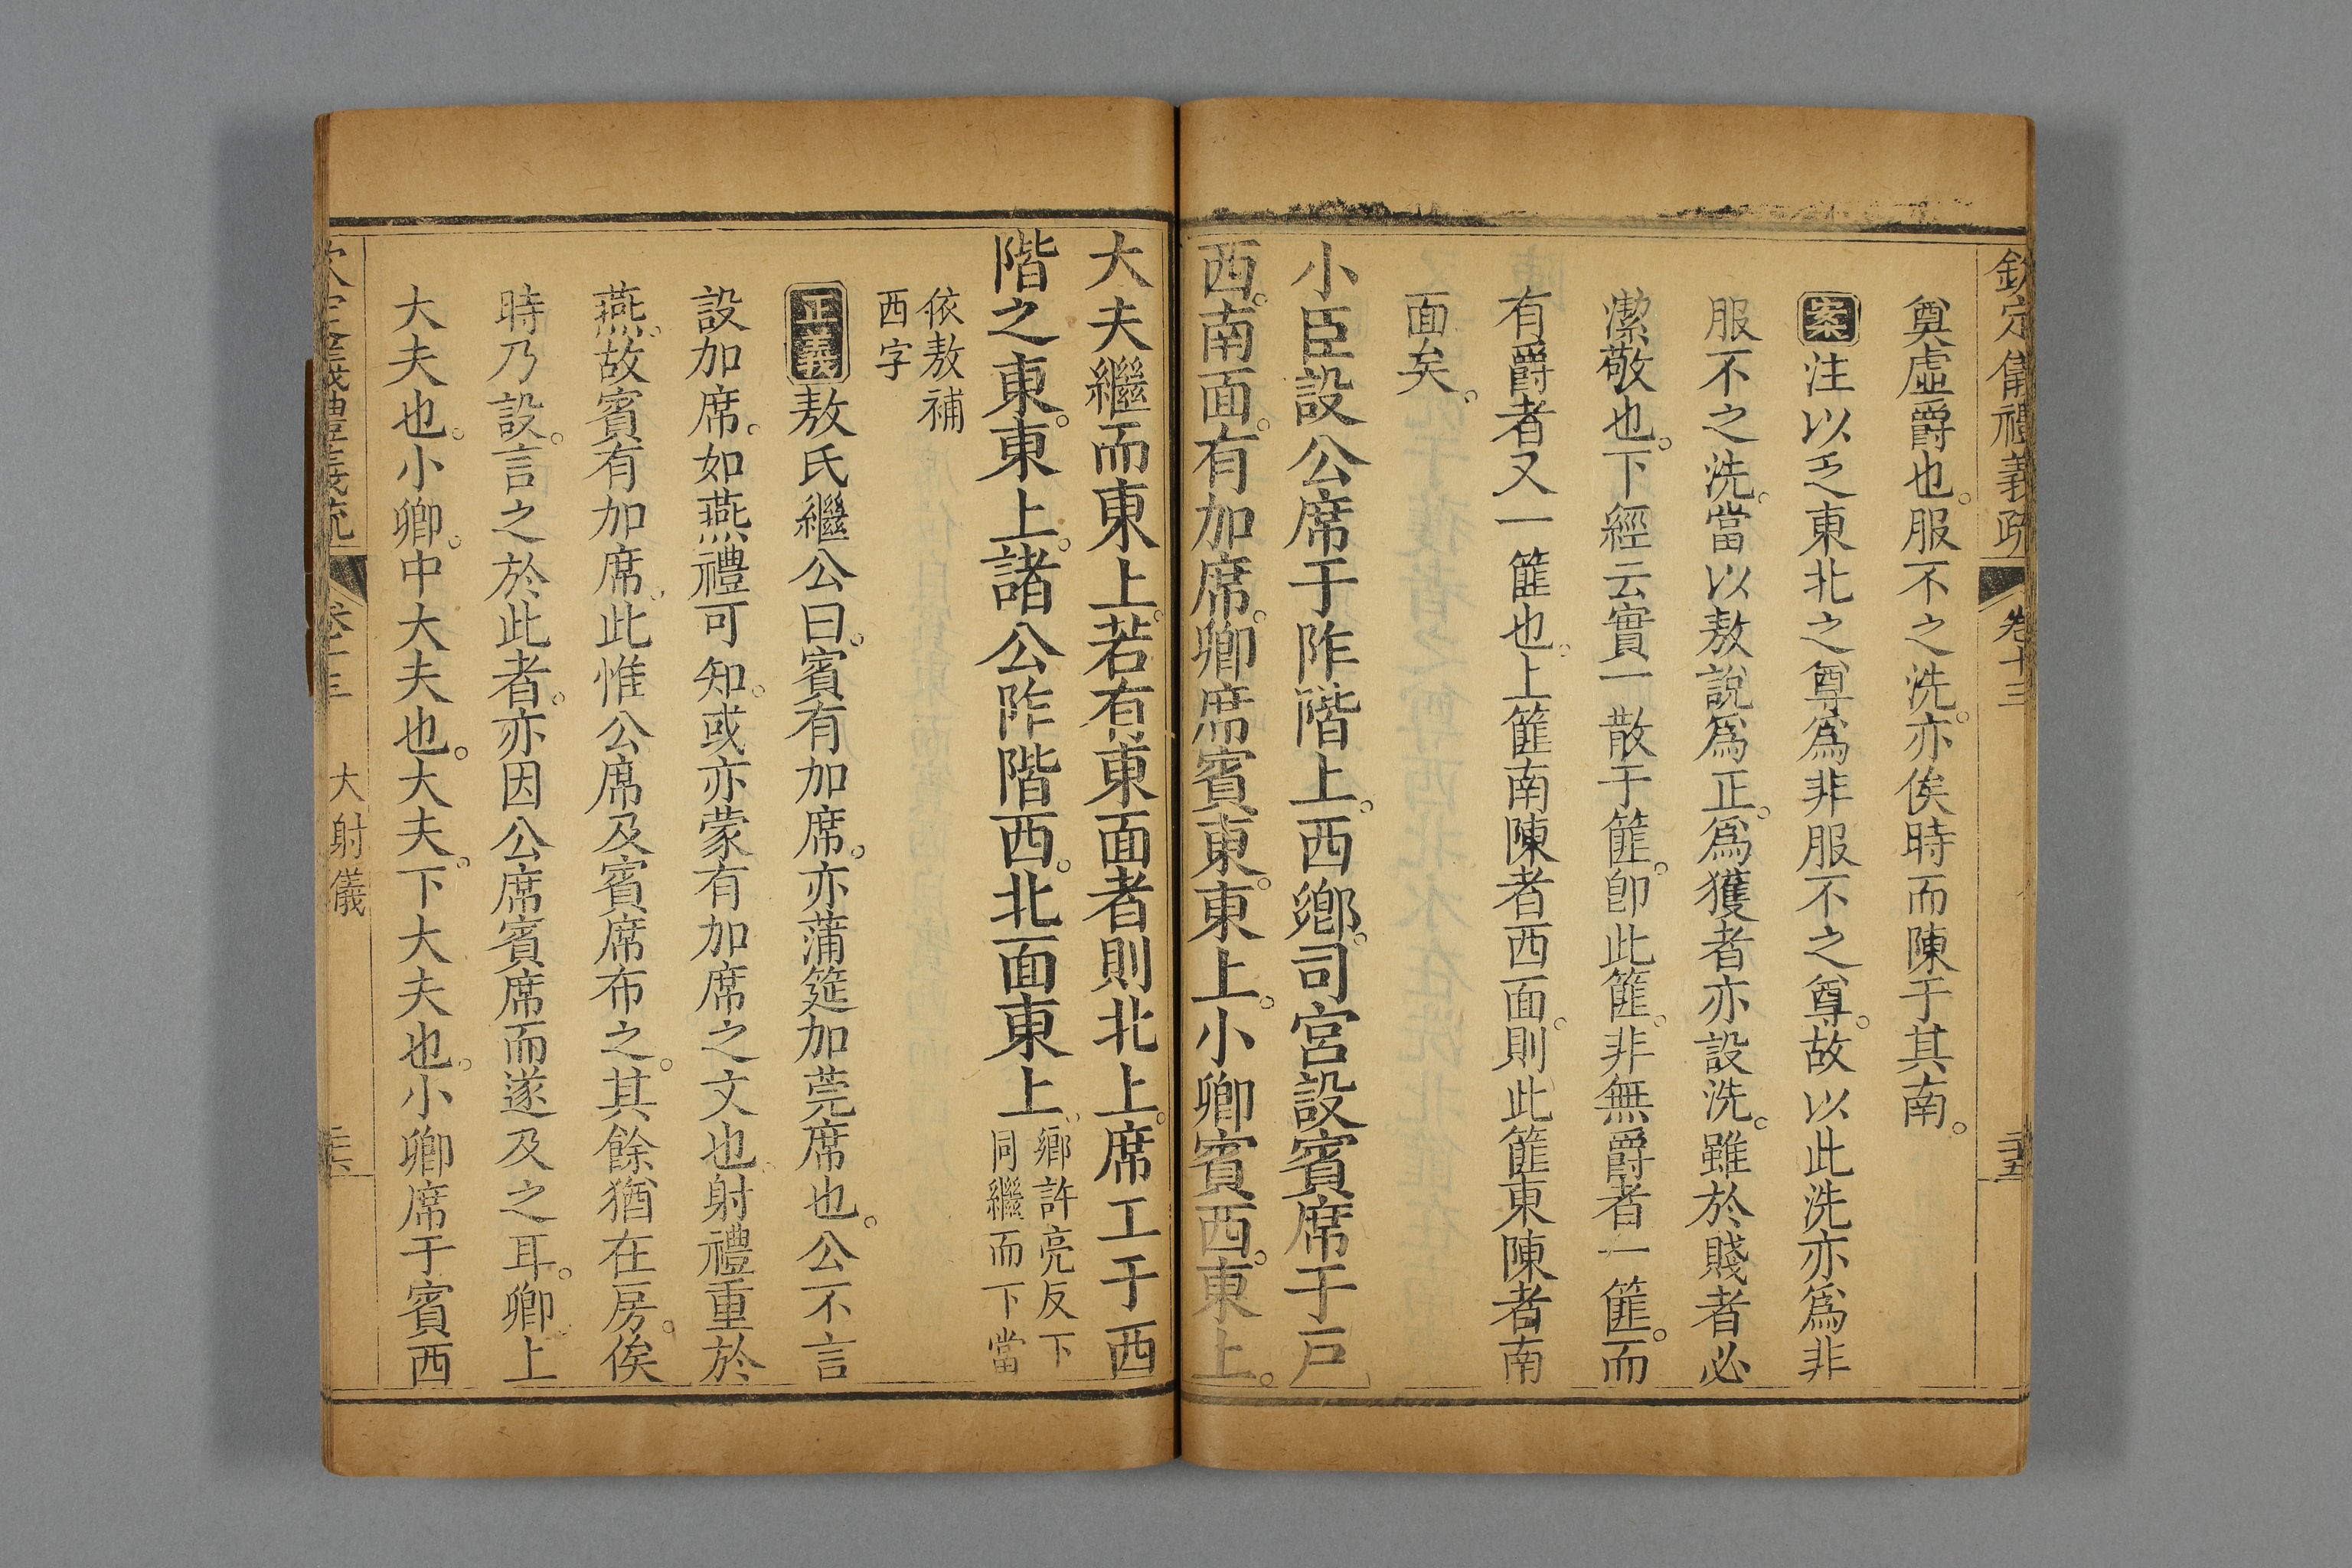 欽定儀禮義疏 卷十三 三十五
奠虛爵也。服不之洗。亦俟時而陳于其南。
案注以乏東北之尊爲非服不之尊。故以此洗亦爲非
服不之洗。當以敖說爲正。爲獲者亦設洗。雖於賤者必
潔敬也。下經云實一散于篚。卽此篚。非無爵者一篚。而
有爵者又一篚也。上篚南陳者西面。則此篚東陳者南
面矣。
小臣設公席于阼階上。西鄉。司宮設賓席于戶
西。南面。有加席。卿席賓東。東上。小卿賓西。東上。
大夫繼而東上。若有東面者則北上。席工于西
階之東。東上。諸公阼階西。北面東上。鄉許亮反下
同繼而下當
依敖補
西字
正義敖氏繼公曰。賓有加席。亦蒲筵加莞席也。公不言
設加席。如燕禮可知。或亦蒙有加席之文也。射禮重於
燕。故賓有加席。此惟公席及賓席布之。其餘猶在房。俟
時乃設。言之於此者。亦因公席賓席而遂及之耳。卿。上
大夫也。小卿。中大夫也。大夫。下大夫也。小卿席于賓西
大射儀